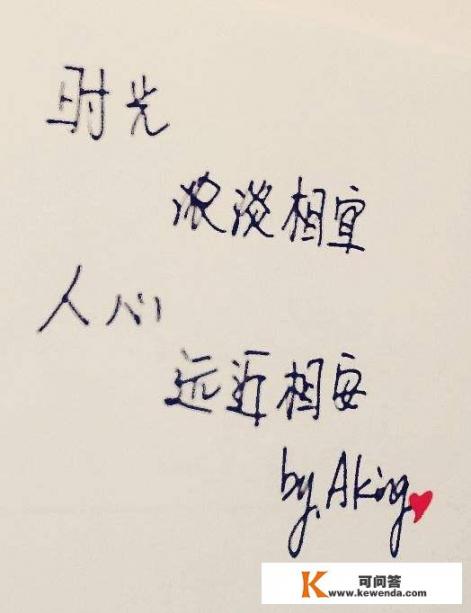 时光
浓淡相宜
人心
远近相安
by.Aking
K 可问答
www.kewenda.com